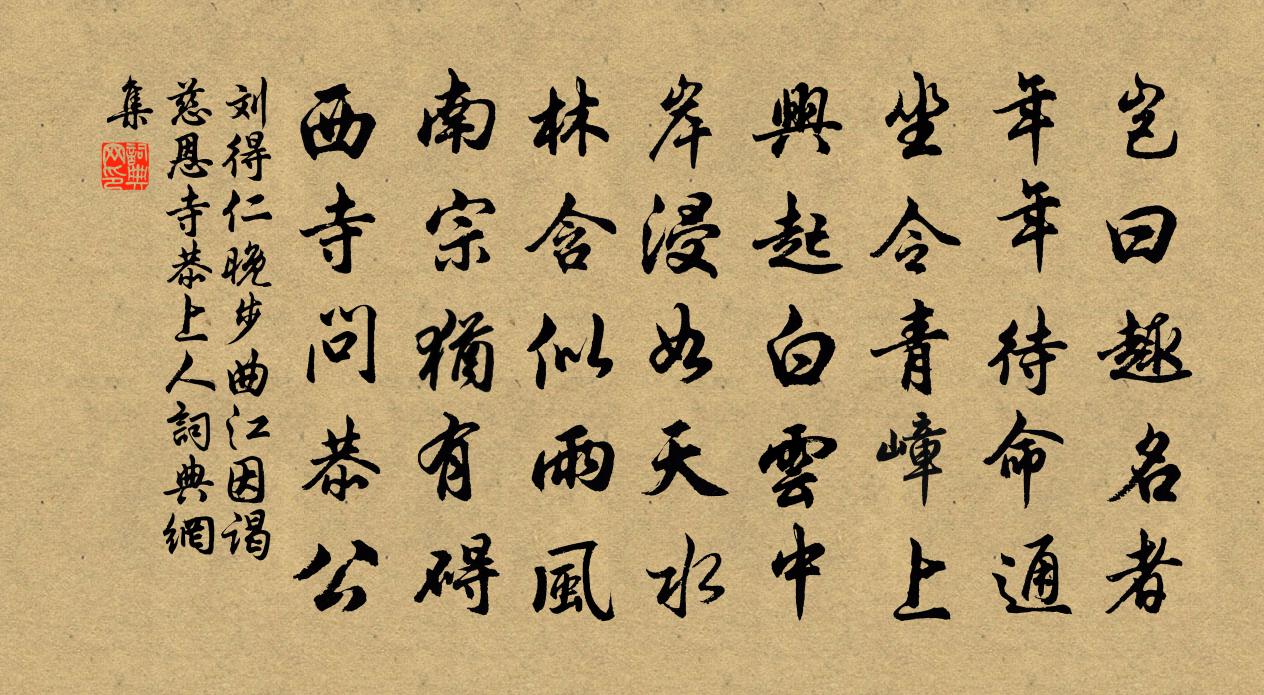 岂曰趣名者
年年待命通
坐令青嶂上
興起白雲中
岸浸如天水
林含似雨風
南宗猶有碍
西寺問恭公
刘得仁晚步曲江因谒
慈恩寺恭上人詞典網
集
詞典
网印